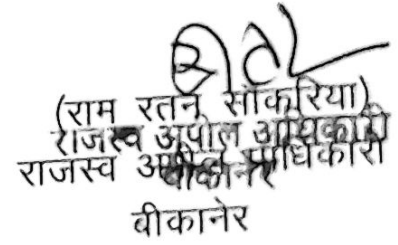 (राम रतन सौकरिया)
राजस्व अपील अधिकारी
राजस्व अपील प्राधिकारी
बीकानेर
बीकानेर